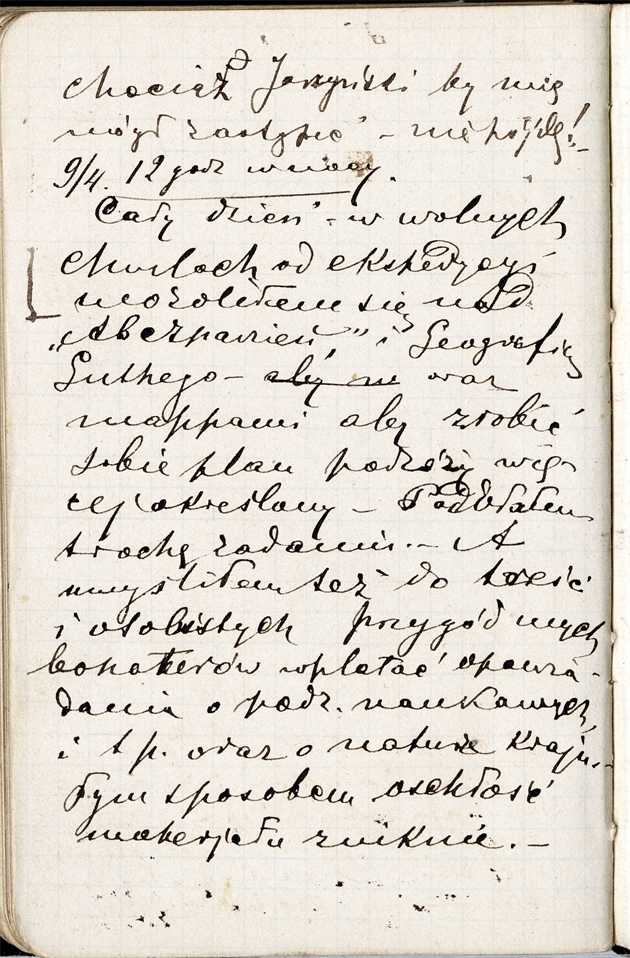 chociaż Jarzyński by mię
mógł zastąpić – nie pójdę! –
9/4. 12 godz w nocy.
Cały dzień – w wolnych
chwilach od ekspedycyi
mozoliłem się nad
„ i Geografią
– aby w oraz
mappami aby zrobić
sobie plan podróży wię-
cej określony –
trochę zadaniu. – A
umyśliłem też do treść
i osobistych przygód mych
bohaterów wplatać opowia-
dania o podr. naukowych,
i t p. oraz o naturze kraju. –
Tym sposobem oschłość
materjału zniknie. –